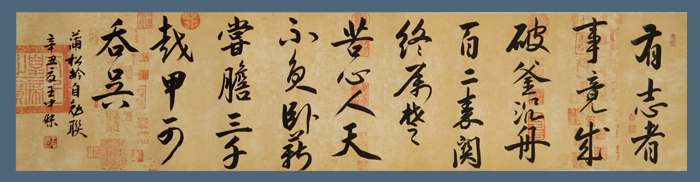 有志者
事竟成
破釜沉舟
百二秦関
終属楚
苦心人天
不負卧薪
嘗膽三千
越甲可
吞吴
蒲松龄自勉联
辛丑夏王中